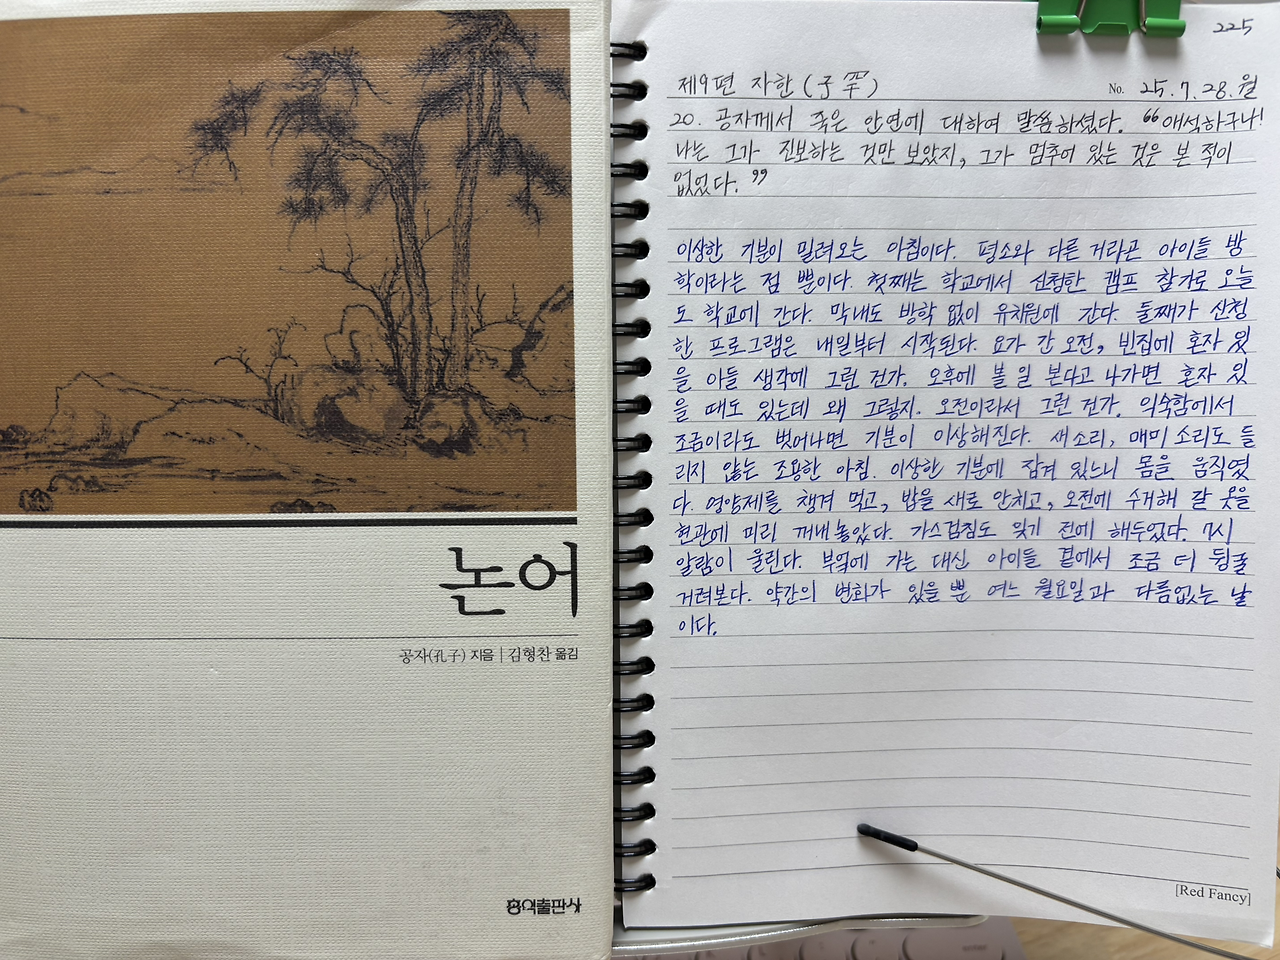 논어
공자(孔子) 지음 | 김형찬 옮김
홍익출판사
225
제9편 자한(子罕)
No. 25.7.28.월
20. 공자께서 죽은 안연에 대하여 말씀하셨다. "애석하구나!
나는 그가 진보하는 것만 보았지, 그가 멈추어 있는 것은 본 적이
없었다."
이상한 기분이 밀려오는 아침이다. 평소와 다른 거라곤 아이들 방
학이라는 점 뿐이다. 첫째는 학교에서 신청한 캠프 참가로 오늘
도 학교에 간다. 막내도 방학 없이 유치원에 간다. 둘째가 신청
한 프로그램은 내일부터 시작된다. 요가 간 오전, 빈집에 혼자 있
을 아들 생각에 그런 건가. 오후에 볼 일 본다고 나가면 혼자 있
을 때도 있는데 왜 그렇지. 오전이라서 그런 건가. 익숙함에서
조금이라도 벗어나면 기분이 이상해진다. 새소리, 매미 소리도 들
리지 않는 조용한 아침. 이상한 기분에 잠겨 있느니 몸을 움직였
다. 영양제를 챙겨 먹고, 밥을 새로 안치고, 오전에 수거해 갈 옷을
현관에 미리 꺼내놓았다. 가스검침도 잊기 전에 해두었다. 7시
알람이 울린다. 부엌에 가는 대신 아이들 곁에서 조금 더 뒹굴
거려본다. 약간의 변화가 있을 뿐 여느 월요일과 다름없는 날
이다.
[Red Fancy]